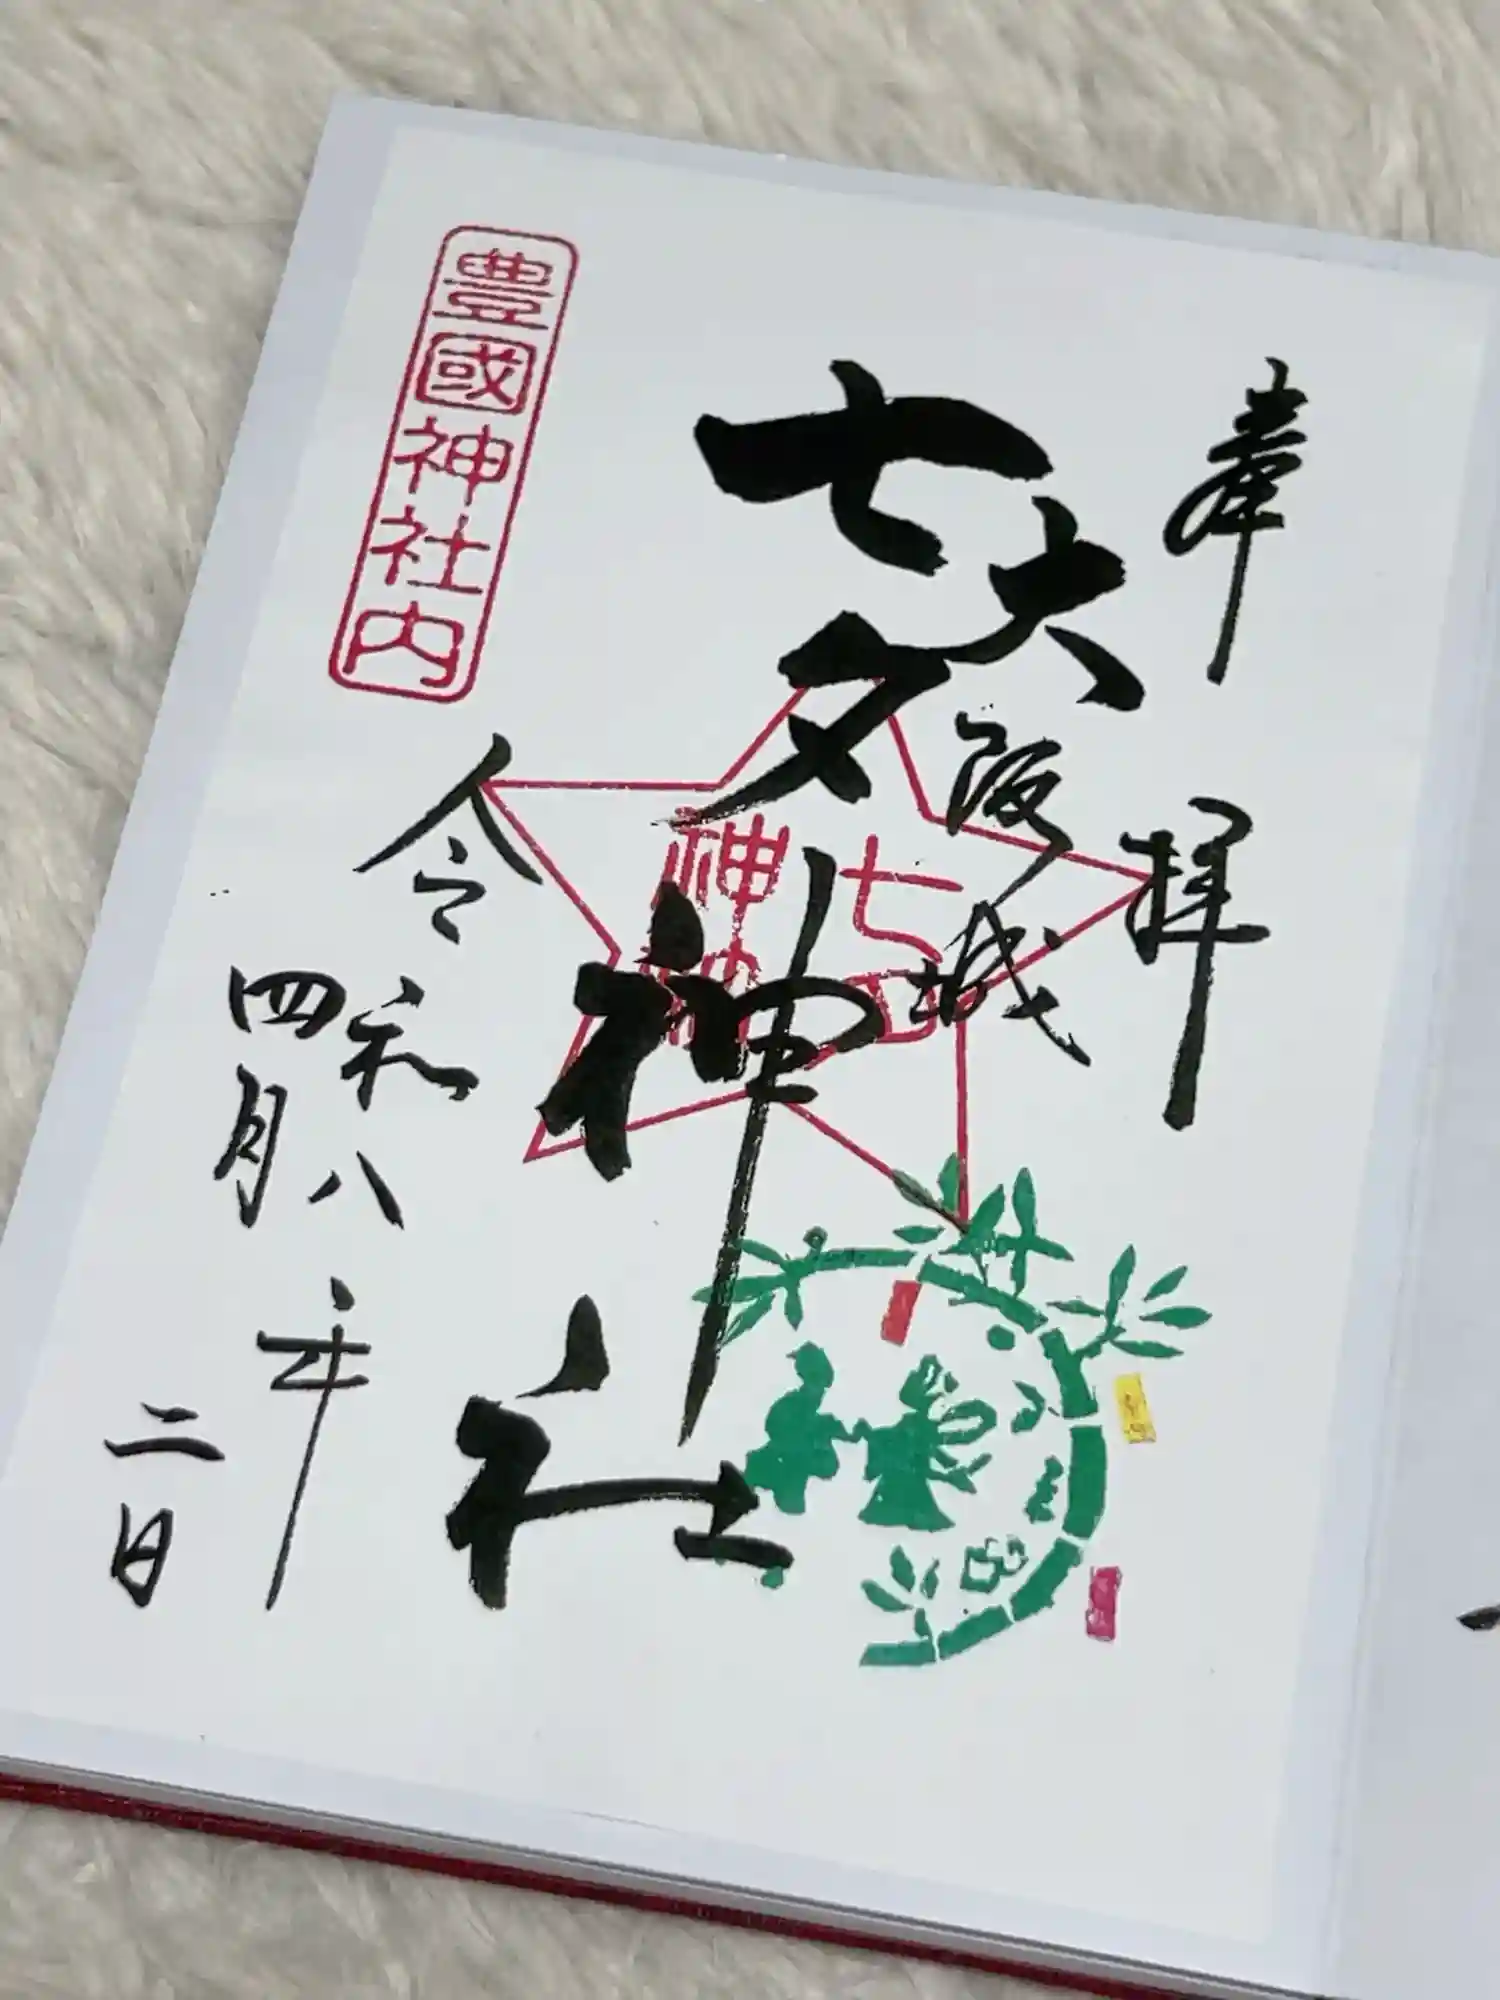 奉拝
大阪城
七夕神社
七夕
神社
令和八年
四月二日
豊國神社内